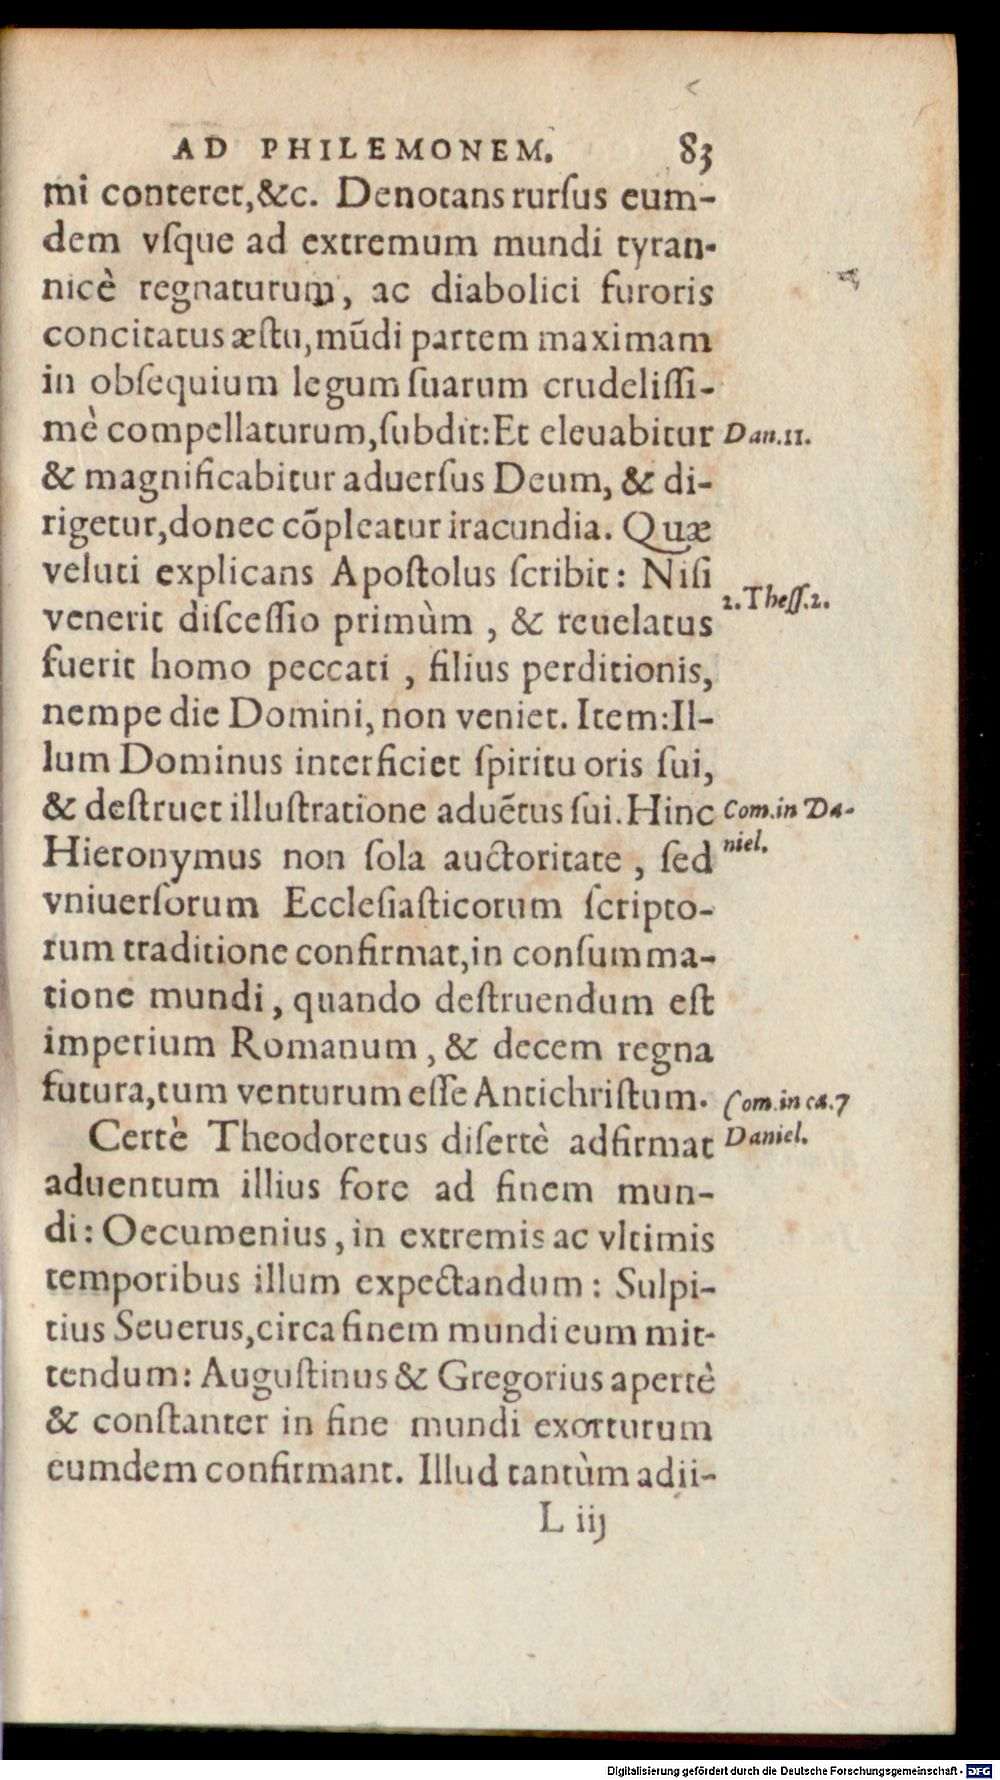 AD PHILEMONEM. 83
mi conteret,&c. Denotans rursus eum-
dem vsque ad extremum mundi tyran-
nicè regnaturum, ac diabolici furoris
concitatus æstu, mūdi partem maximam
in obsequium legum suarum crudelissi-
mè compellaturum, subdit: Et eleuabitur Dan.11.
& magnificabitur aduersus Deum, & di-
rigetur, donec cōpleatur iracundia. Quæ
veluti explicans Apostolus scribit: Nisi
2.Thess.2.
venerit discessio primùm , & reuelatus
fuerit homo peccati , filius perditionis,
nempe die Domini, non veniet. Item: Il-
lum Dominus interficiet spiritu oris sui,
& destruet illustratione aduētus sui. Hinc Com.in Da-
Hieronymus non sola auctoritate , sed niel.
vniuersorum Ecclesiasticorum scripto-
rum traditione confirmat, in consumma-
tione mundi, quando destruendum est
imperium Romanum, & decem regna
futura, tum venturum esse Antichristum. Com.in ca.7
Certè Theodoretus disertè adfirmat Daniel.
aduentum illius fore ad finem mun-
di: Oecumenius, in extremis ac vltimis
temporibus illum expectandum: Sulpi-
tius Seuerus, circa finem mundi eum mit-
tendum: Augustinus & Gregorius apertè
& constanter in fine mundi exorturum
eumdem confirmant. Illud tantùm adii-
L iij
Digitalisierung gefördert durch die Deutsche Forschungsgemeinschaft - DFG